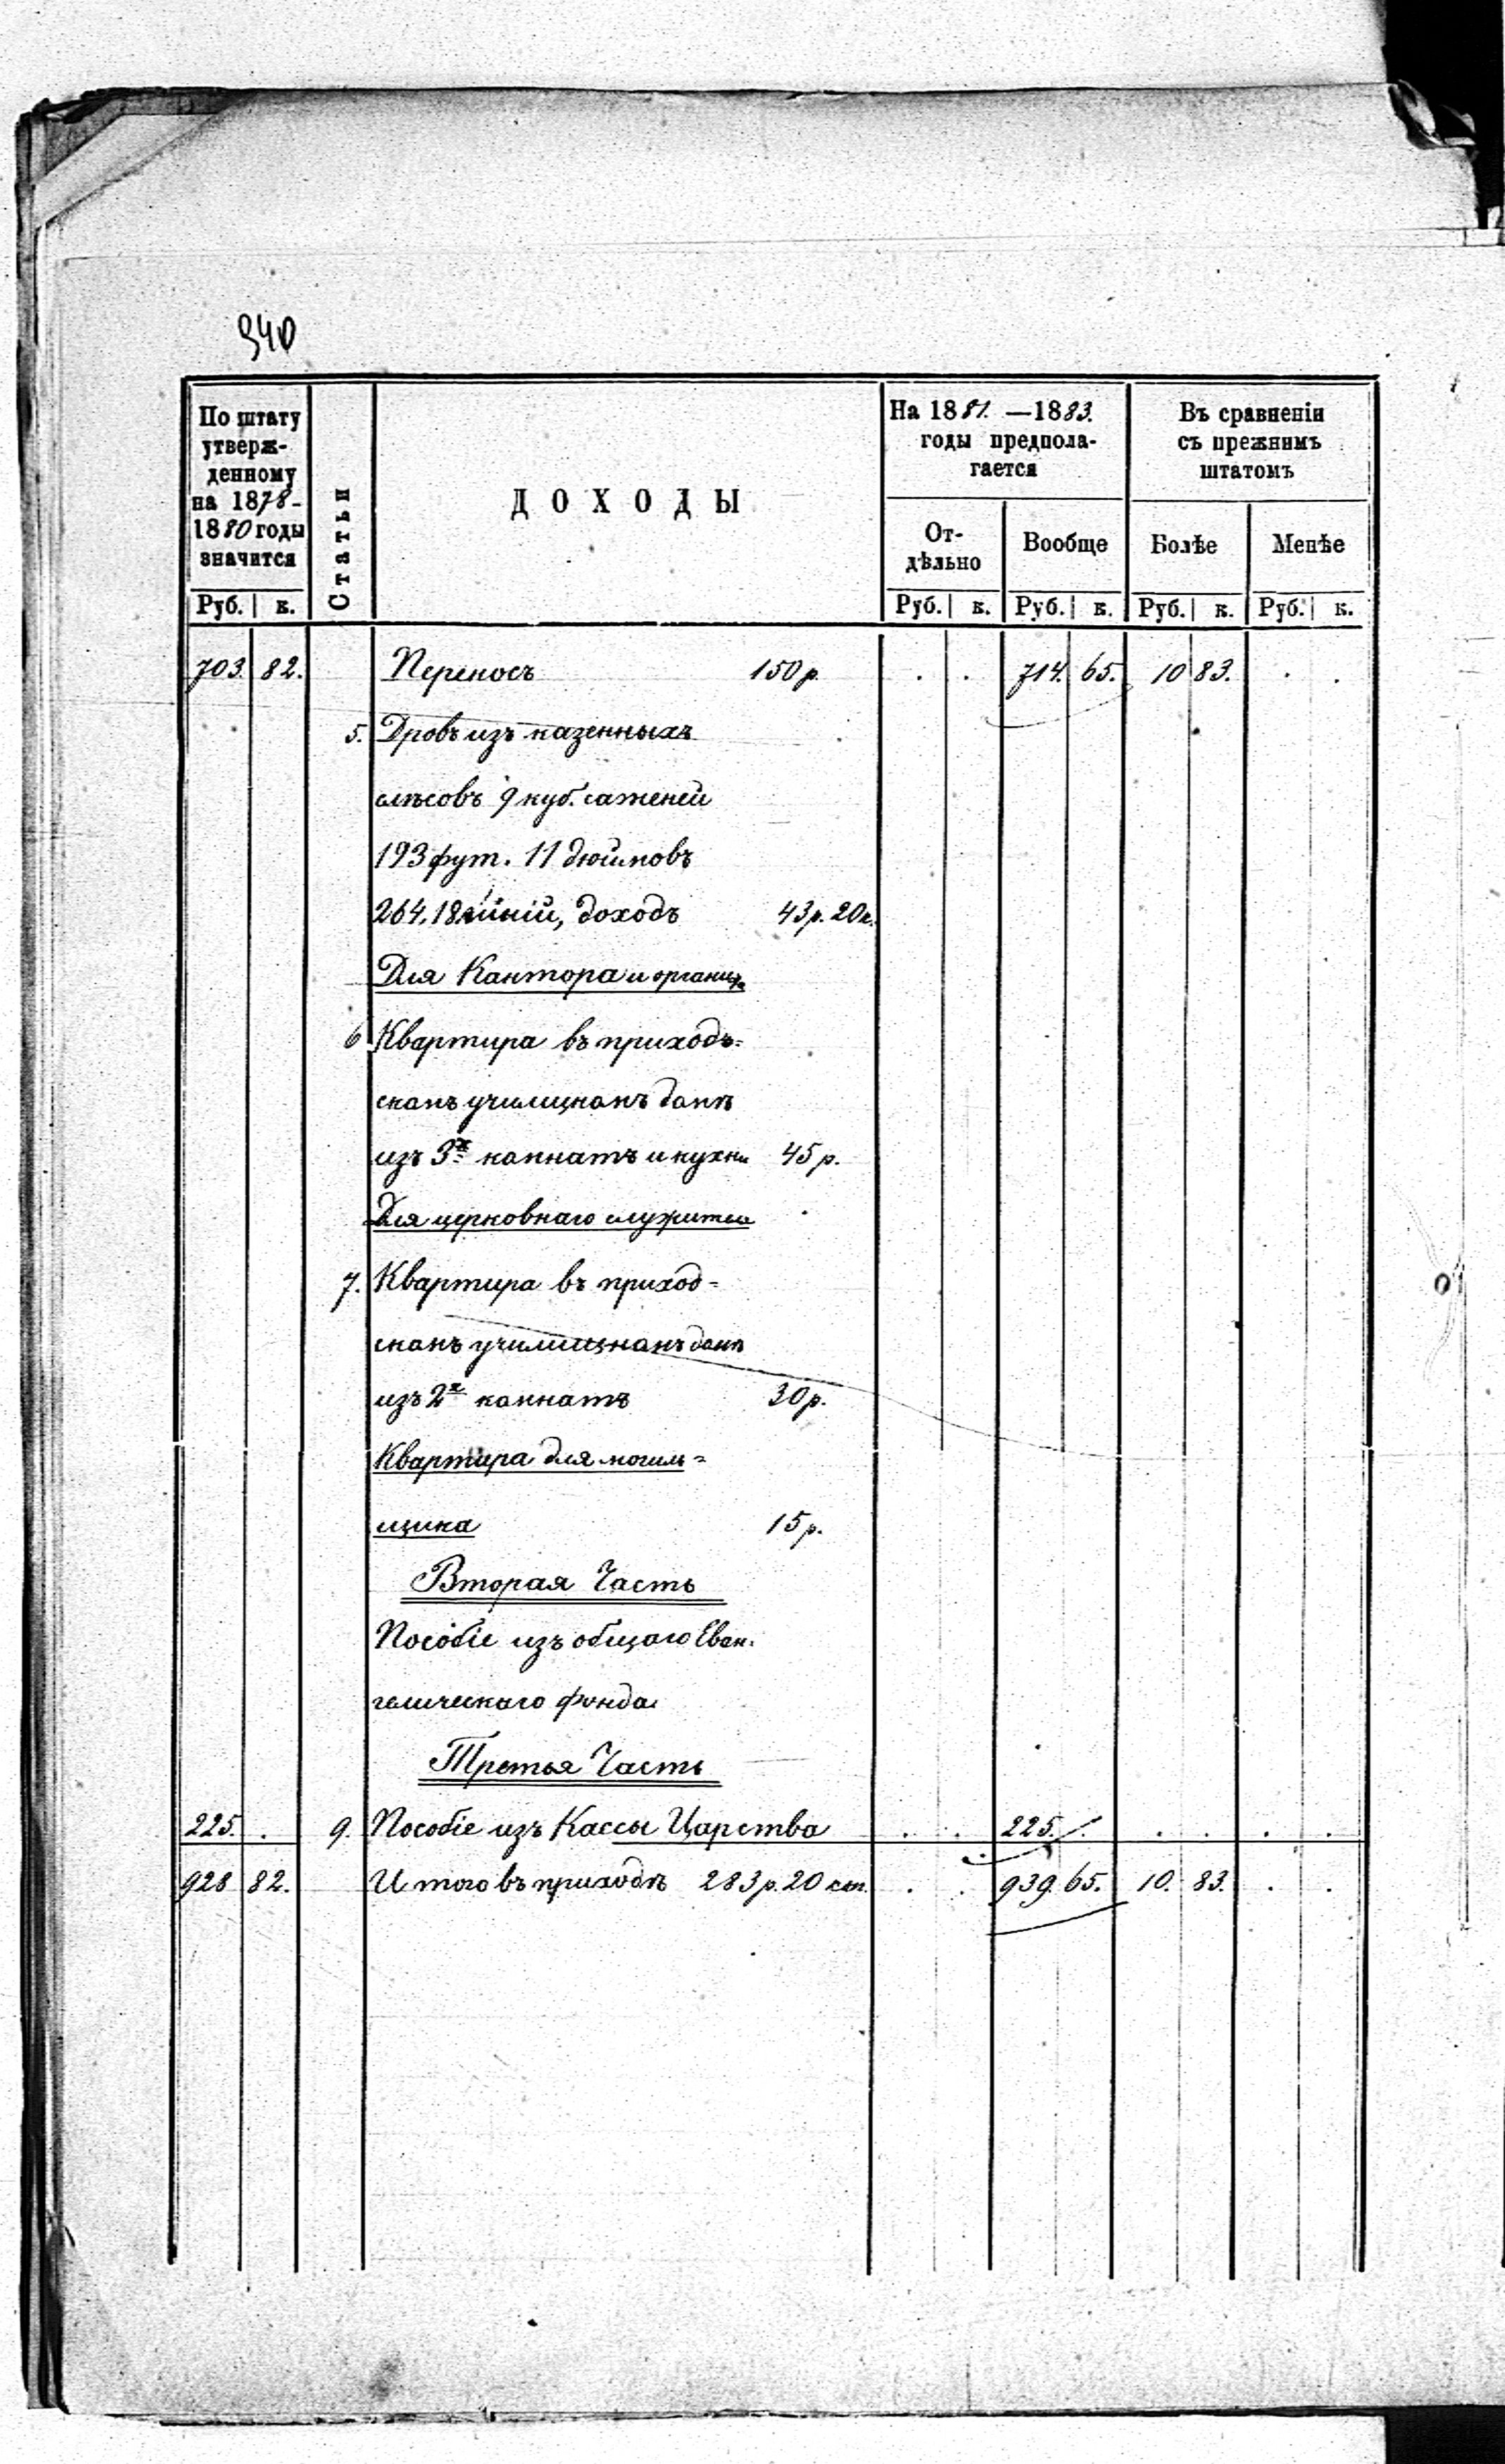 340
По штату утверж-денному на 1878-1880 годы значится
Статьи
ДОХОДЫ
На 1881. —1883. годы предпола-гается
Въ сравненіи съ прежнимъ штатомъ
От-дѣльно
Вообще
Болѣе
Менѣе
Руб. к. Руб. к. Руб. к. Руб. к. Руб. к.
703. 82. Переносъ 150 р. . . 714. 65. 10 83. . .
5. Дровъ изъ казенныхъ
лѣсовъ 9 куб. саженей
193 фут. 11 дюймовъ
264,18 линій, доходъ 43 р. 20 к.
Для Кантора и органис.
6 Квартира въ приход-
скомъ училищномъ домѣ
изъ 3х комнатъ и кухни 45 р.
Для церковнаго служителя
7. Квартира въ приход=
скомъ училищномъ домѣ
изъ 2х комнатъ 30 р.
Квартира для могиль=
щика 15 р.
Вторая Часть
Пособіе изъ общаго Еван.
гелическаго фонда
Третья Часть
225. . 9. Пособіе изъ Кассы Царства . . 225. . . . . .
928 82. Итого въ приходѣ 283 р. 20 коп. . . 939. 65. 10. 83. . .